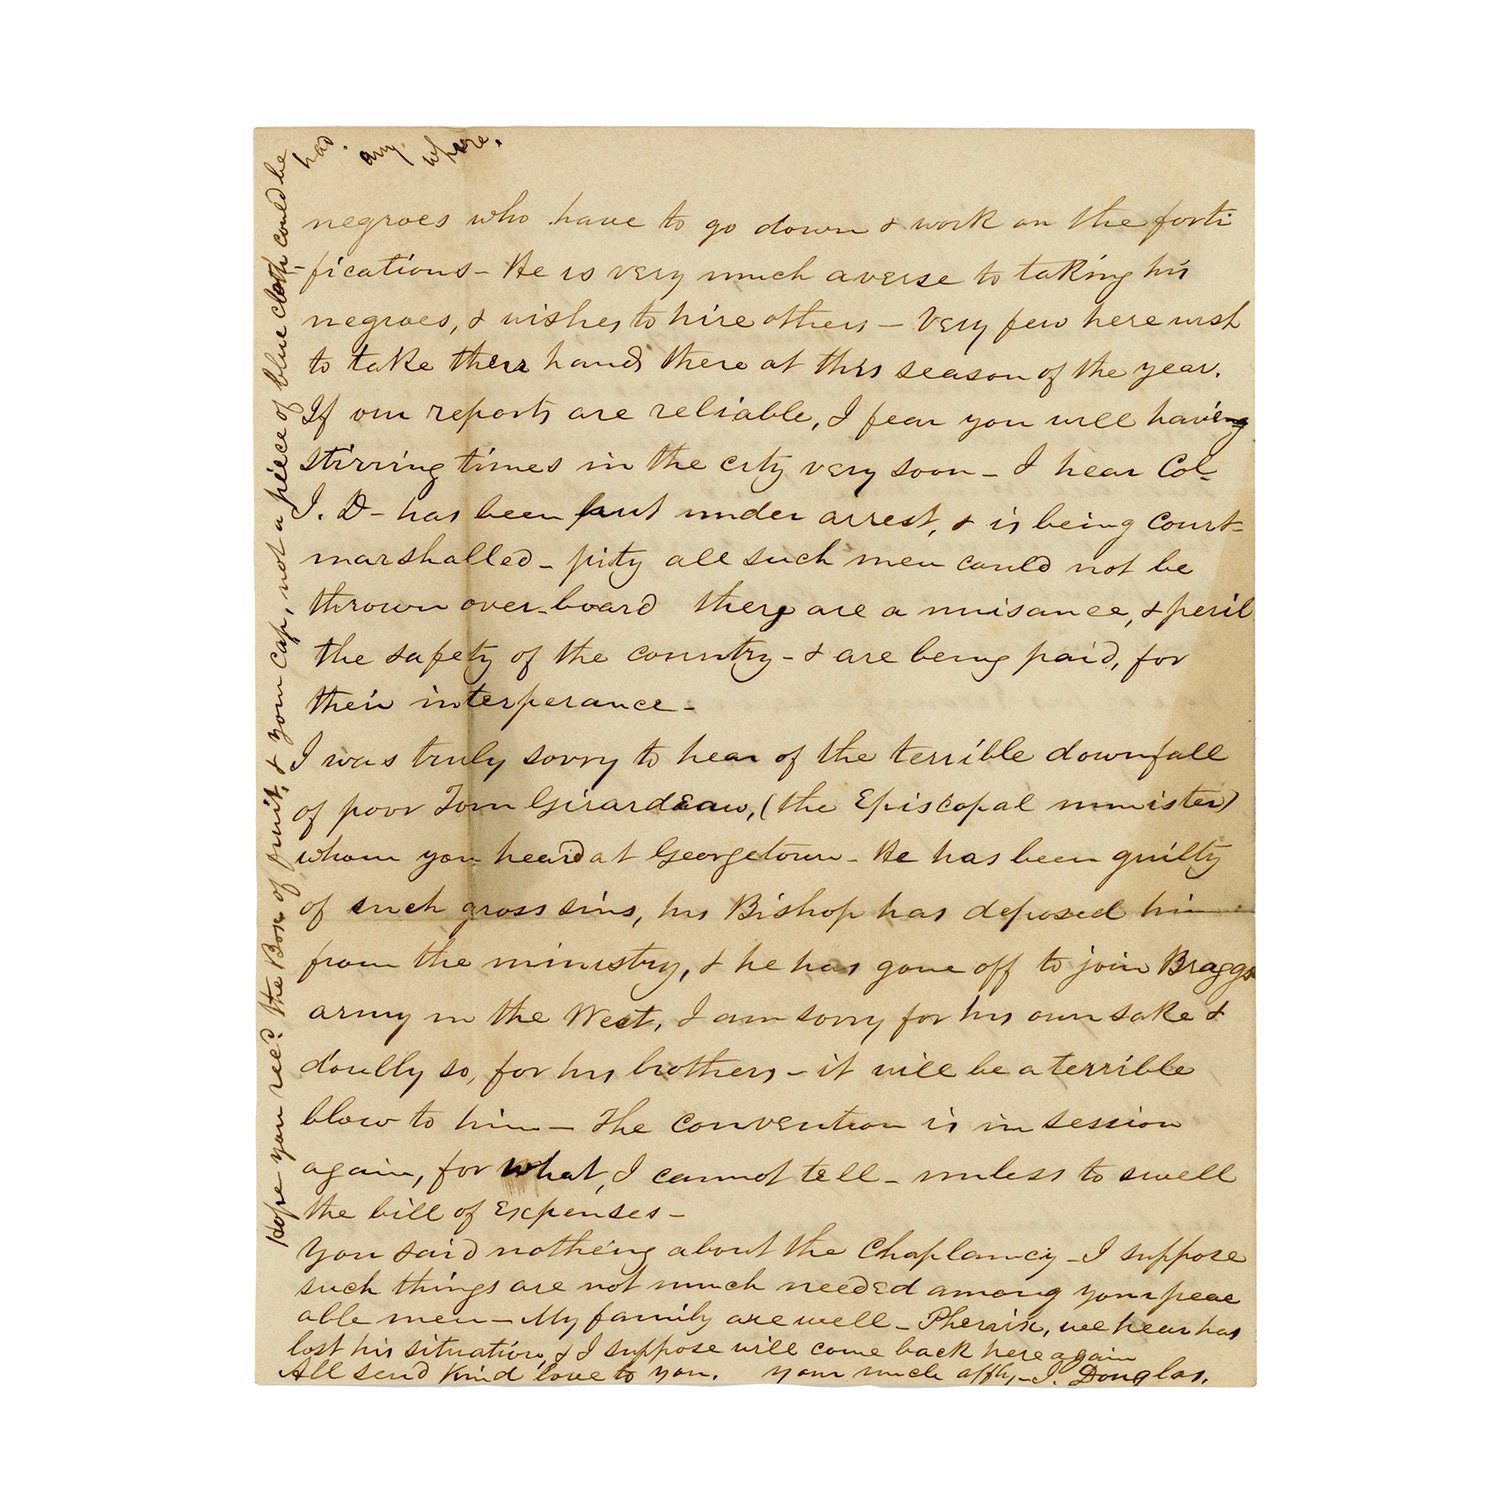 negroes who have to go down & work on the forti
fications - He is very much averse to taking his
negroes, & wishes to hire others - Very few here wish
to take their hands there at this season of the year.
If our reports are reliable, I fear you will having
stirring times in the city very soon - I hear Col-
J. D - has been put under arrest, & is being court-
marshalled - pity all such men could not be
thrown over-board they are a nuisance, & peril
the safety of the country - & are being paid, for
their intemperance -
I was truly sorry to hear of the terrible downfall
of poor Tom Girardeau, (the Episcopal minister)
whom you heard at Georgetown - He has been guilty
of such gross sins, his Bishop has deposed him
from the ministry, & he has gone off to join Braggs
army in the West, I am sorry for his own sake &
doully so, for his brothers - it will be a terrible
blow to him - The convention is in session
again, for what, I cannot tell - unless to swell
the bill of expenses -
You said nothing about the Chaplancy - I suppose
such things are not much needed among your peac
able men - My family are well - , we hear has
lost his situation, & I suppose will come back here again
All send kind love to you. your much affly - J. Douglas.
Hope you rec? the Box of fruit, & your cap, not a piece of blue cloth could be
had. any where.